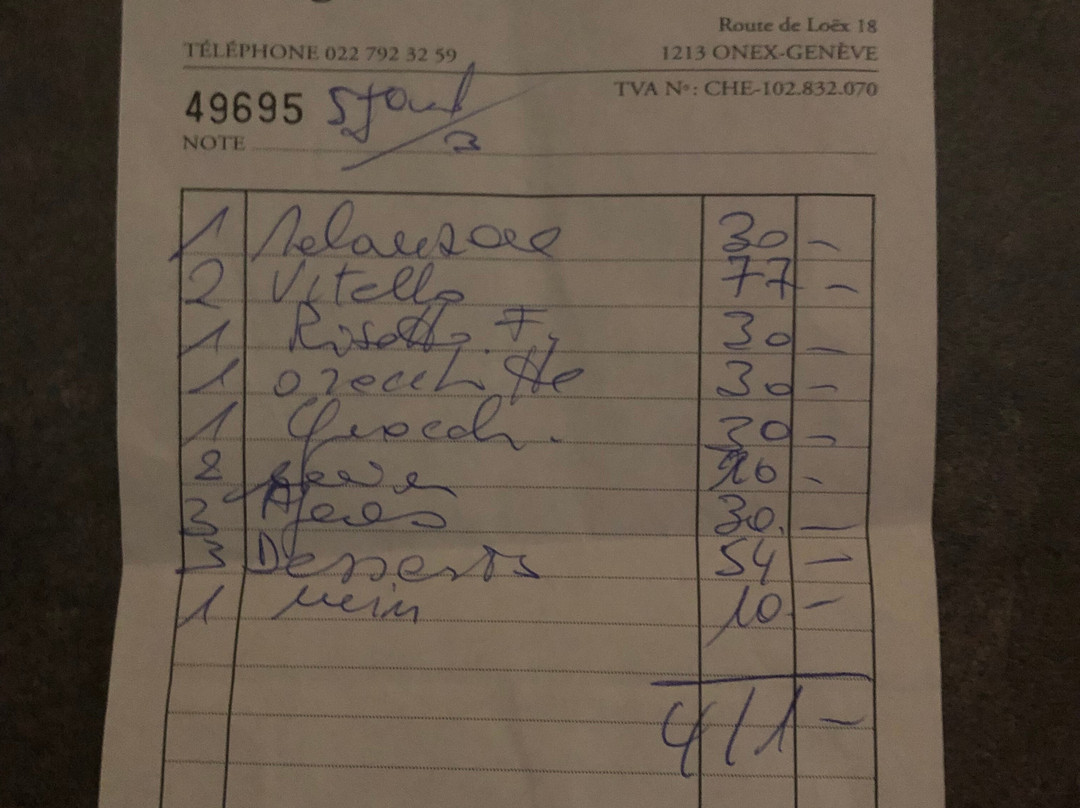 Route de Loëx 18
TÉLÉPHONE 022 792 32 59 1213 ONEX-GENÈVE
TVA Nº: CHE-102.832.070
49695
3
NOTE
1 Melanzane 30 –
2 Vitello 77 –
1 Risotto F. 30 –
1 orecchiette 30 –
1 Gnocchi. 30 –
2 120 –
3 Aperos 30. –
3 Desserts 54 –
1 10 –
411 –